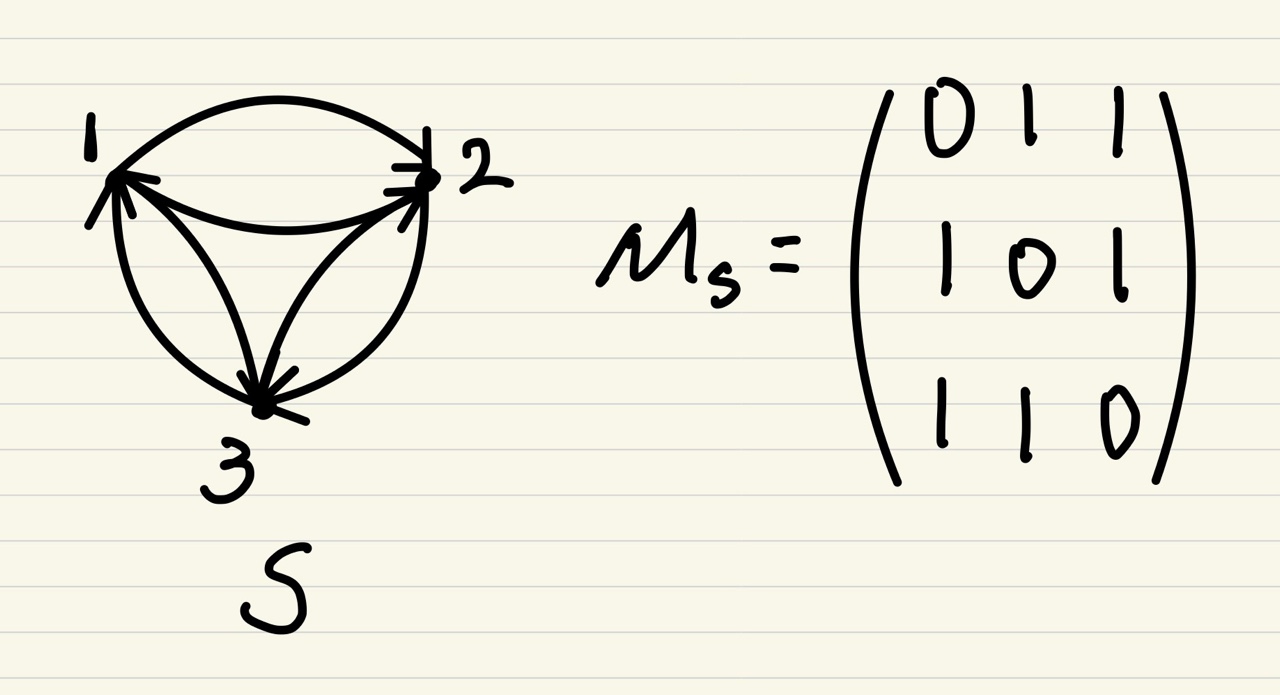 1
2
3
S
M_S = 
0 1 1
1 0 1
1 1 0